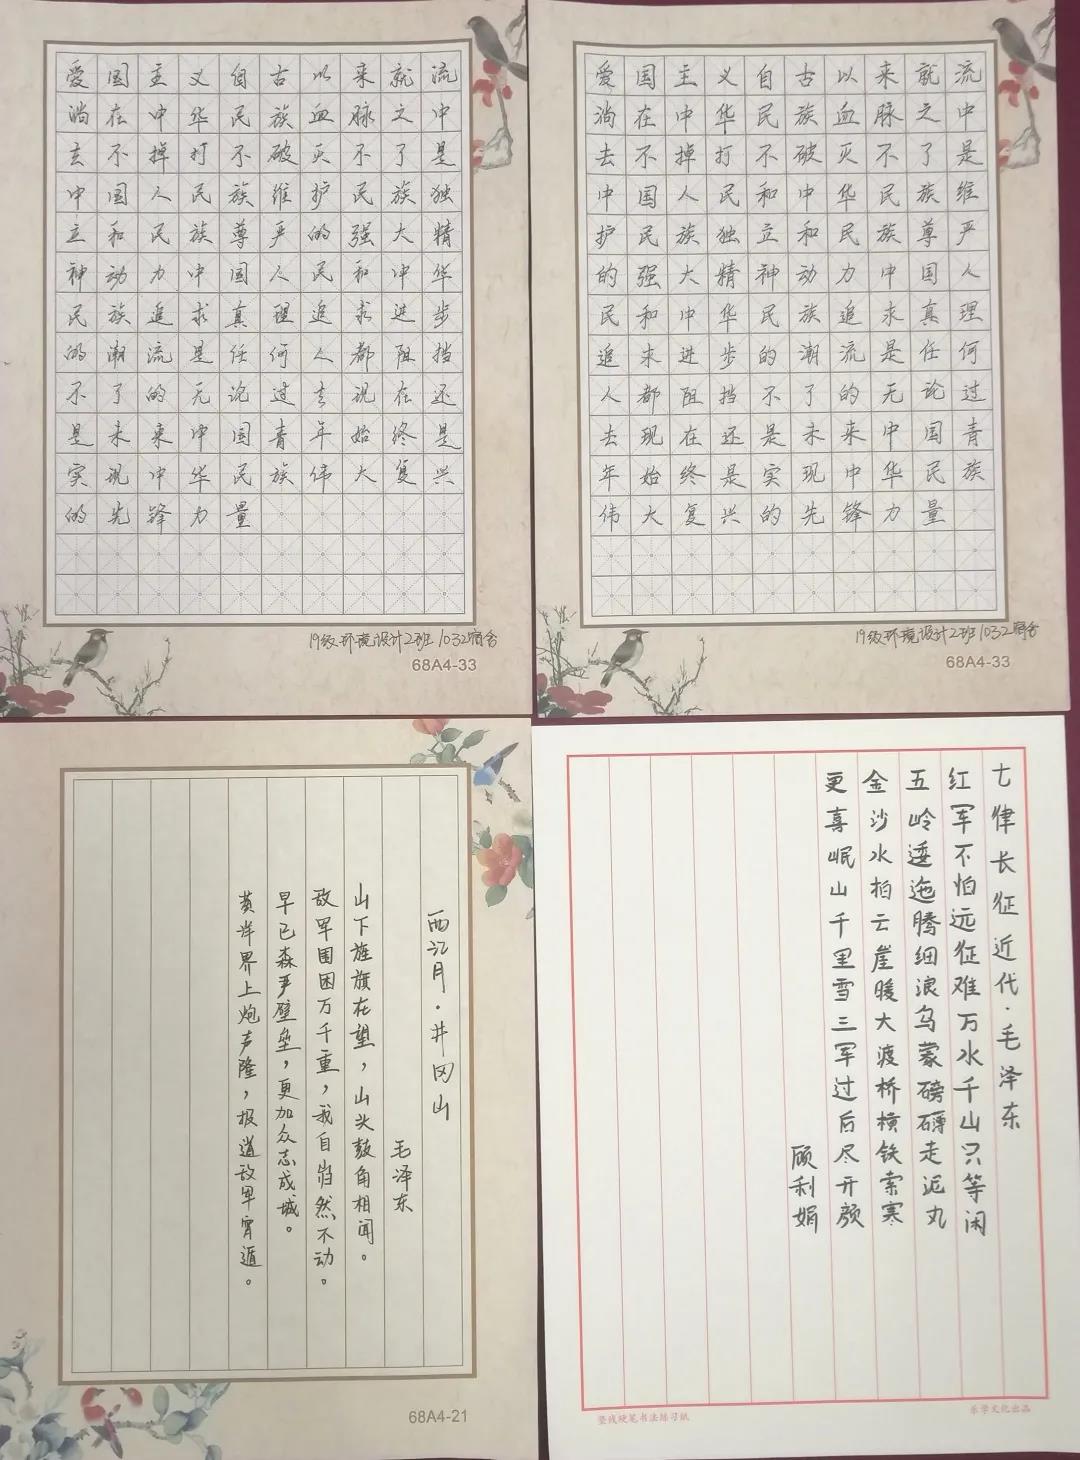 爱国主义自古以来就流
淌在中华民族血脉之中
去不掉打不破灭不了是
中国人民族维护民族独
立和民族尊严的强大精
神动力中国人民和中华
民族追求真理追求进步
的潮流是任何人都阻挡
不了的无论过去现在还
是未来中国青年始终是
实现中华民族伟大复兴
的先锋力量
19级环境设计2班1032宿舍
68A4-33
爱国主义自古以来就流
淌在中华民族血脉之中
去不掉打不破灭不了是
中国人民和中华民族维
护民族独立和民族尊严
的强大精神动力中国人
民和中华民族追求真理
追来进步的潮流是任何
人都阻挡不了的无论过
去现在还是未来中国青
年始终是实现中华民族
伟大复兴的先锋力量
19级环境设计2班1032宿舍
68A4-33
西江月·井冈山
毛泽东
山下旌旗在望，山头鼓角相闻。
敌军围困万千重，我自岿然不动。
早已森严壁垒，更加众志成城。
黄洋界上炮声隆，报道敌军宵遁。
68A4-21
七律长征近代·毛泽东
红军不怕远征难万水千山只等闲
五岭逶迤腾细浪乌蒙磅礴走泥丸
金沙水拍云崖暖大渡桥横铁索寒
更喜岷山千里雪三军过后尽开颜
顾利娟
竖线硬笔书法练习纸
乐学文化出品